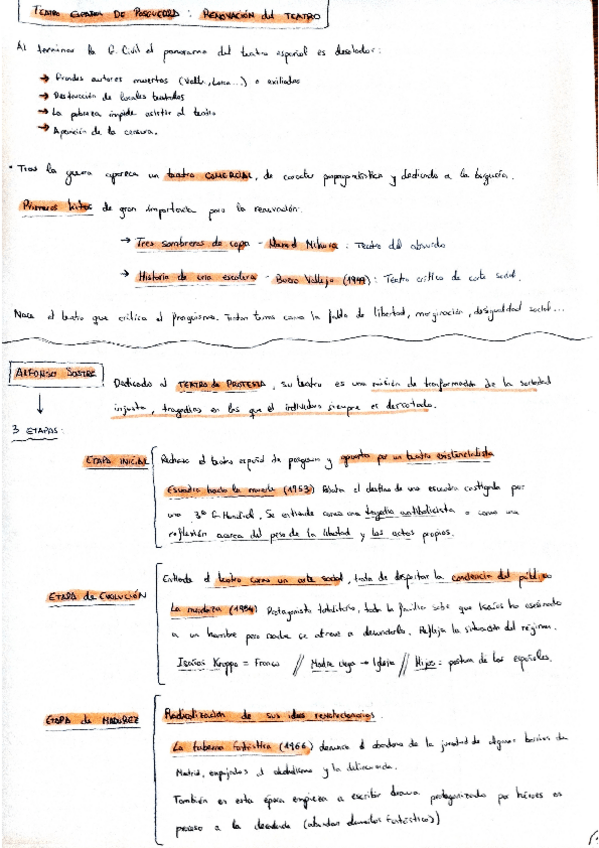 TEATRO ESPAÑOL DE POSGUERRA: RENOVACIÓN del TEATRO
Al terminar la G. Civil el panorama del teatro español es desolador:
→ Grandes autores muertos (Valle, Lorca...) o exiliados
→ Destrucción de locales teatrales
→ La pobreza impide asistir al teatro
→ Aparición de la censura.
• Tras la guerra aparece un teatro COMERCIAL, de carácter propagandístico y dedicado a la burguesía.
Primeros hitos de gran importancia para la renovación:
→ Tres sombreros de copa - Mihura: Teatro del absurdo
→ Historia de una escalera - Buero Vallejo (1949): Teatro crítico de corte social.
Nace el teatro que critica el franquismo. Tratan temas como la falta de libertad, marginación, desigualdad social...
ALFONSO SASTRE
Dedicado al TEATRO de PROTESTA, su teatro es una misión de transformación de la sociedad
injusta, tragedias en las que el individuo siempre es derrotado.
3 ETAPAS:
ETAPA INICIAL
Rechaza el teatro español de posguerra y apuesta por un teatro existencialista
Escuadra hacia la muerte (1953) Relata el destino de una escuadra castigada por
una 3ª G. Mundial. Se entiende como una tragedia antibelicista o como una
reflexión acerca del peso de la libertad y los actos propios.
ETAPA de EVOLUCIÓN
Entiende el teatro como un arte social, trata de despertar la conciencia del público
La mordaza (1954) Protagonista totalitario, toda la familia sabe que Isaías ha asesinado
a un hombre pero nadie se atreve a denunciarlo. Refleja la situación del régimen.
Isaías Krappo = Franco // Madre ciega → Iglesia // Hijos: postura de los españoles.
ETAPA de MADUREZ
Radicalización de sus ideas revolucionarias.
La taberna fantástica (1966) denuncia el abandono de la juventud de algunos barrios de
Madrid, empujados al alcoholismo y la delincuencia.
También en esta época empieza a escribir drama protagonizado por héroes en
proceso a la decadencia (abundan elementos fantásticos)